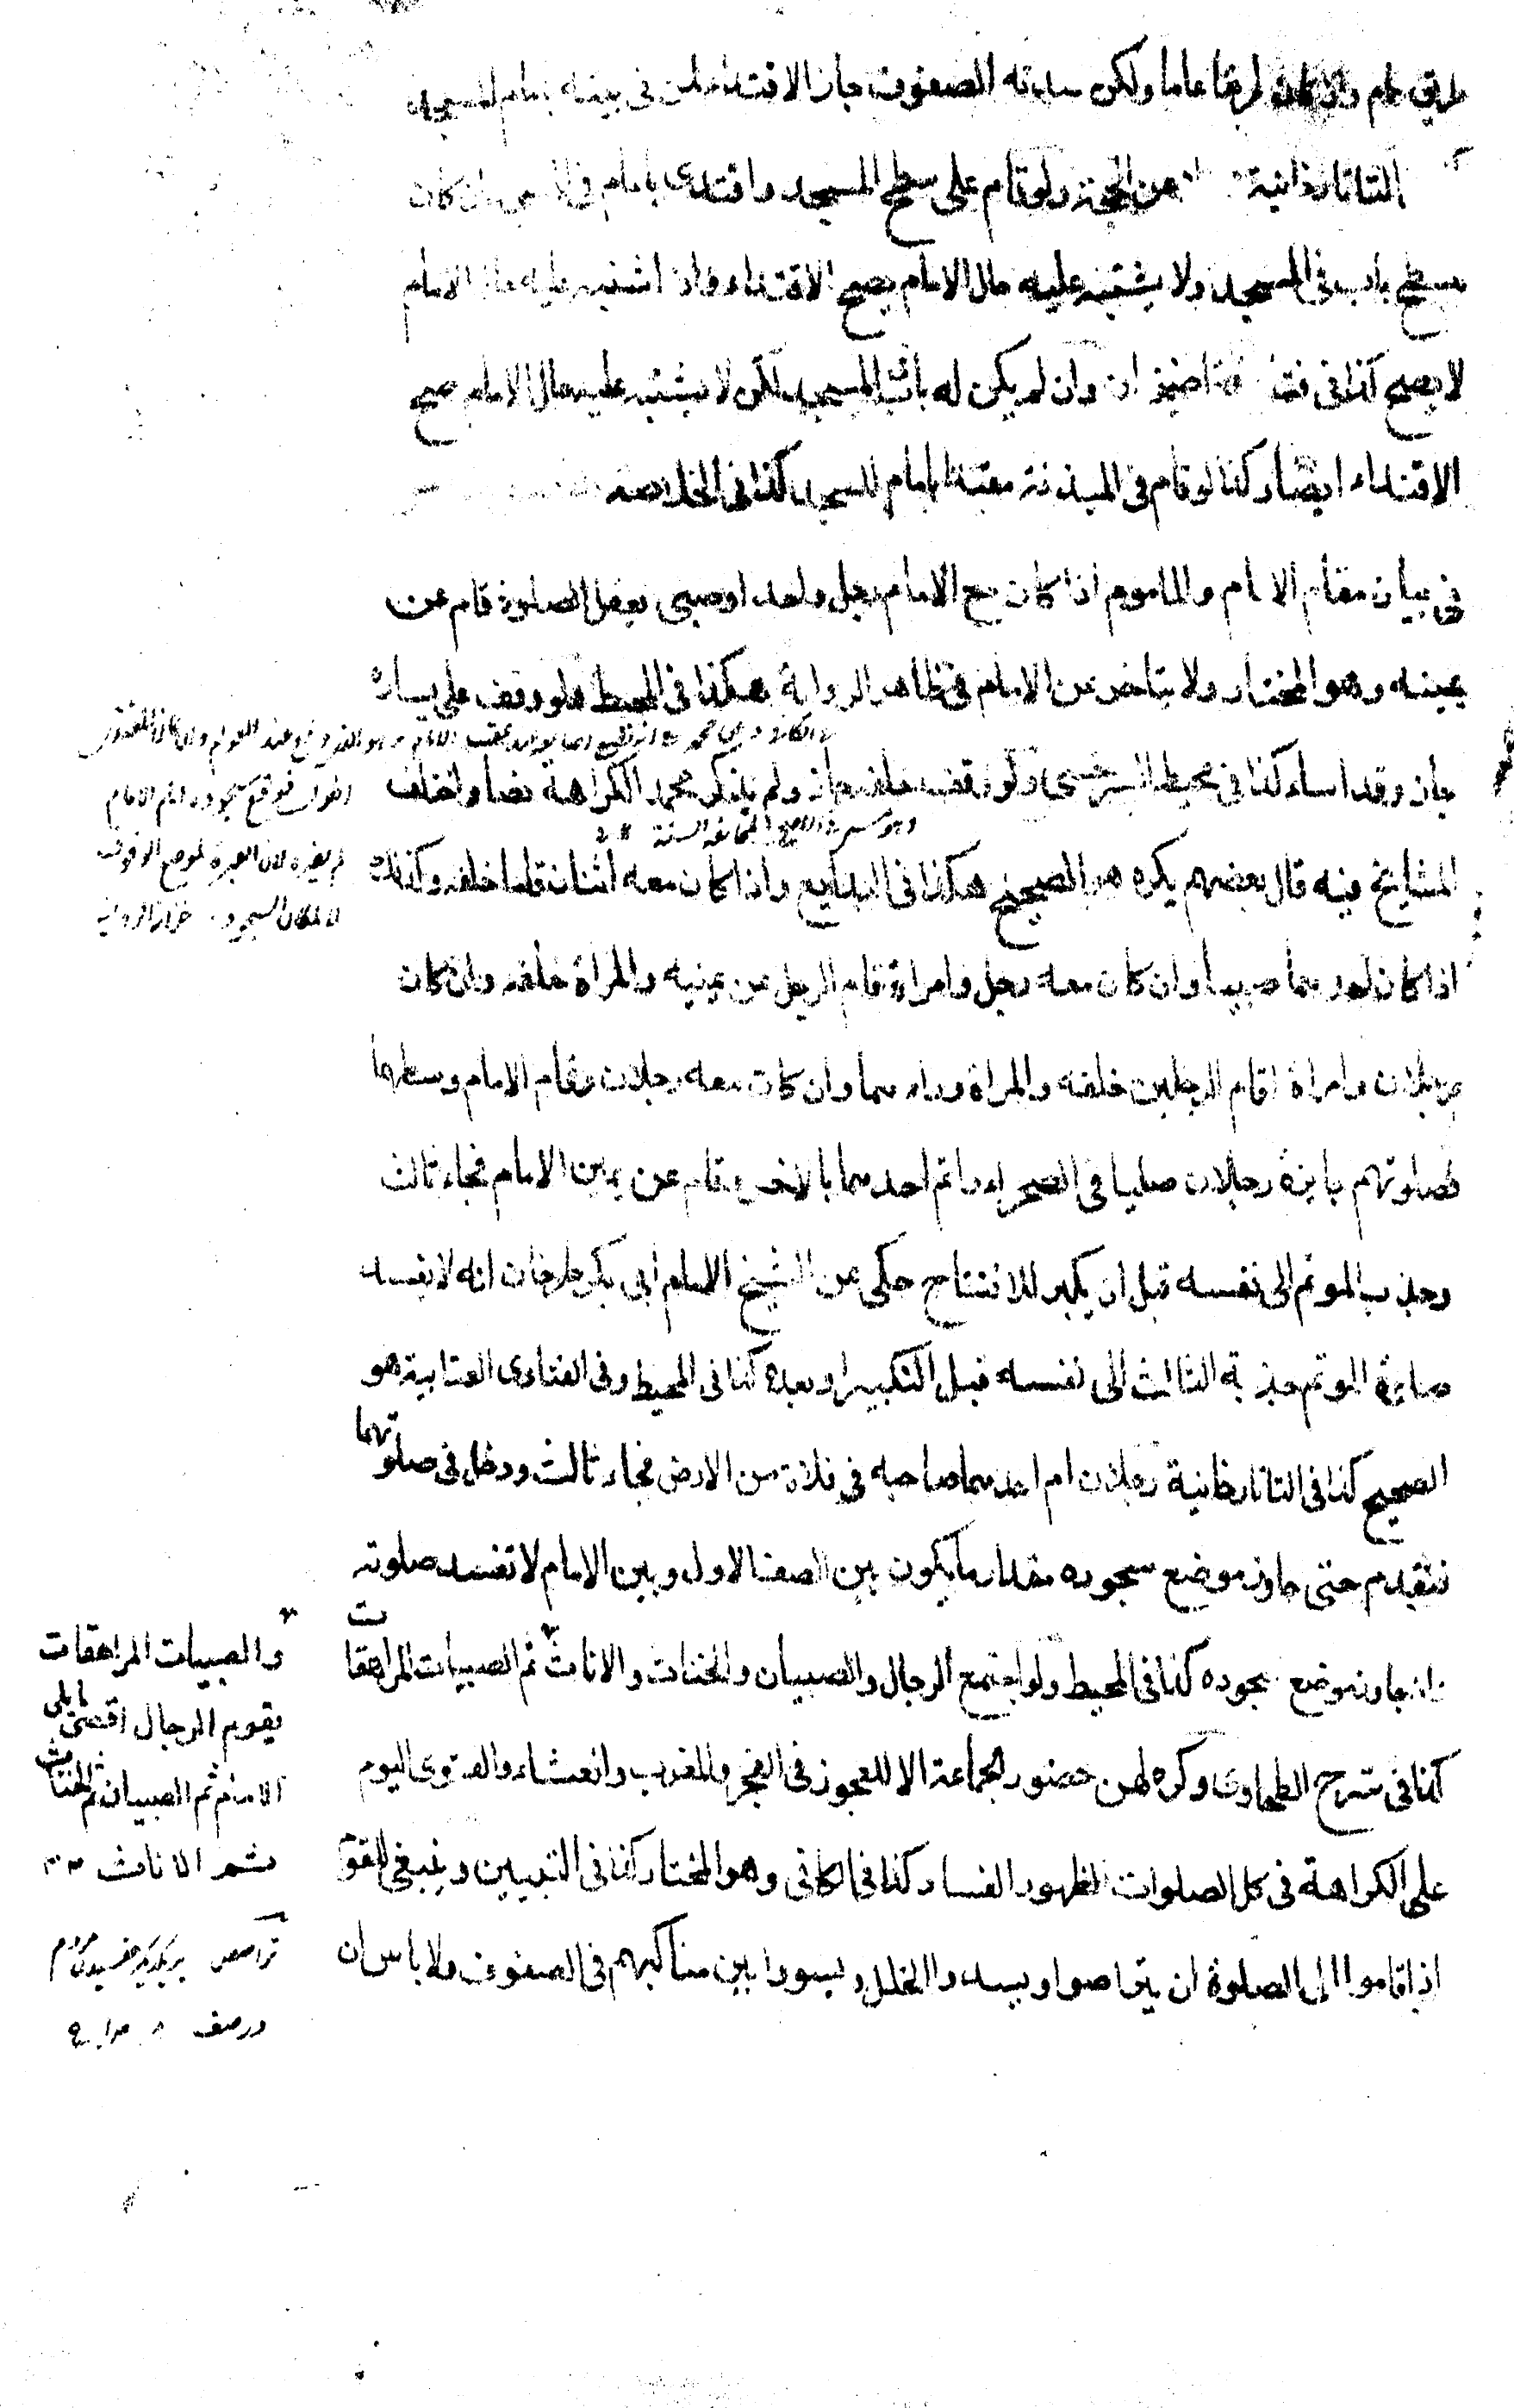 طريق عام وان كان طريقا عاما ولكن سدته الصفوف جاز الاقتداء لمن فى بيته بامام المسجد
التاتارخانية عن الحجة ولو قام على سطح المسجد واقتدى بامام فى المسجد ان كان
للسطح باب فى المسجد ولا يشتبه عليه حال الامام يصح الاقتداء وان اشتبه عليه حال الامام
لا يصح كذا فى فتاوى قاضيخان وان لم يكن له باب فى المسجد لكن لا يشتبه عليه حال الامام صح
الاقتداء ايضا وكذا لو قام فى الميذنة مقتديا بامام المسجد كذا فى الخلاصه
فى بيان مقام الامام والماموم اذا كان مع الامام رجل واحد او صبى يعقل الصلوة قام عن
يمينه وهو المختار ولا يتاخر عن الامام فى ظاهر الرواية هكذا فى المحيط ولو وقف على يساره
جاز وقد اساء كذا فى محيط السرخسى ولو وقف خلفه جاز ولم يذكر محمد الكراهة نصا واختلف
المشايخ فيه قال بعضهم يكره هو الصحيح هكذا فى البدايع واذا كان معه اثنان قاما خلفه وكذلك
اذا كان احدهما صبيا وان كان معه رجل وامراة قام الرجل عن يمينه والمراة خلفه وان كان
رجلان وامراة اقام الرجلين خلفه والمراة وراءهما وان كان معه رجلان وقام الامام وسطهما
فصلوتهم جايزة رجلان صليا فى الصحراء وائتم احدهما بالاخر وقام عن يمين الامام فجاء ثالث
وجذب الموتم الى نفسه قبل ان يكبر للافتتاح حكى عن الشيخ الامام ابى بكر طرخان انه لا يفسد
صلوة الموتم جذبة الثالث الى نفسه قبل التكبير او بعده كذا فى المحيط وفى الفتاوى العتابية هو
الصحيح كذا فى التاتارخانية رجلان ام احدهما صاحبه فى فلاة من الارض فجاء ثالث ودخل فى صلوتهما
فتقدم حتى جاوز موضع سجوده مقدار ما يكون بين الصف الاول وبين الامام لا تفسد صلوته
وان جاوز موضع سجوده كذا فى المحيط ولو اجتمع الرجال والصبيان والخناث والاناث ثم الصبيات المراهقات
كذا فى شرح الطحاوى وكره لهن حضور الجماعة الا للعجوز فى الفجر والمغرب والعشاء والفتوى اليوم
على الكراهة فى كل الصلوات لظهور الفساد كذا فى الكافى وهو المختار كذا فى التبيين وينبغى للقوم
اذا قاموا الى الصلوة ان يتراصوا ويسدوا الخلل ويسووا بين مناكبهم فى الصفوف ولا باس ان
اطول فوقع سجوده امام الامام
لم يضره لان العبرة لموضع الوقوف
لا لمكان السجود
والصبيات المراهقات
يقوم الرجال اقصى ما يلى
الامام ثم الصبيان ثم الخناث
ثم الاناث